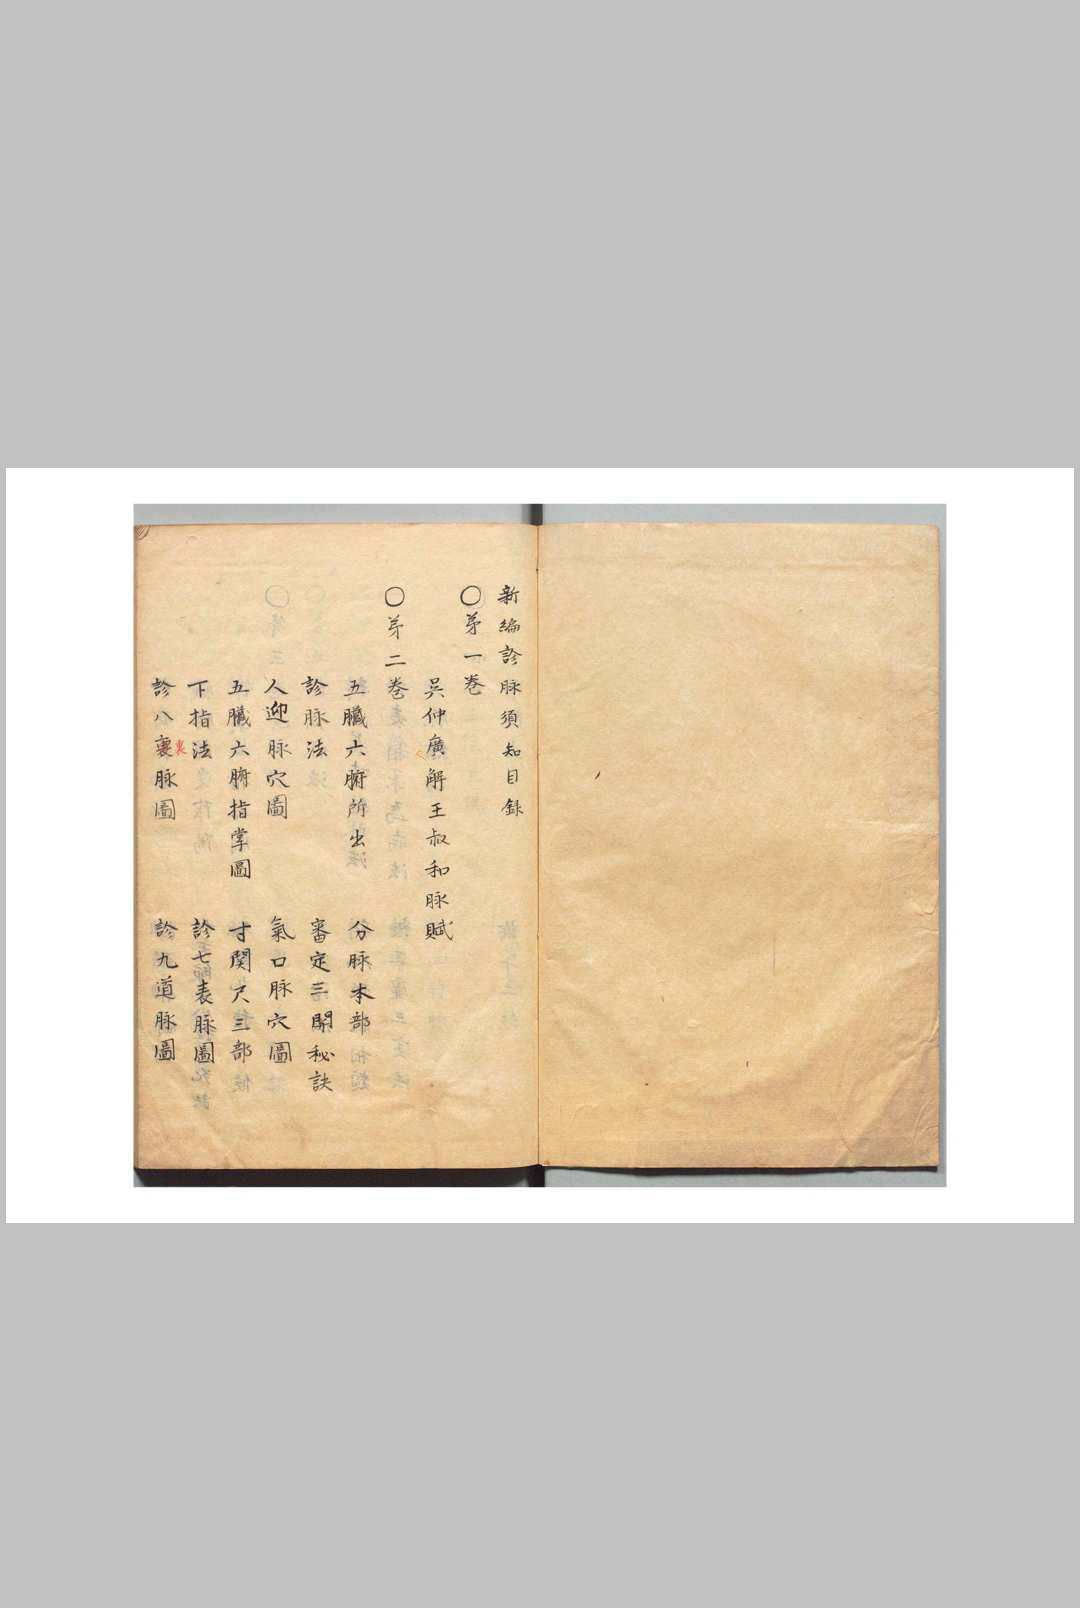 新編診脉須知目録
〇苐一巻
吳仲廣解王叔和脉賦
〇苐二巻
五臓六腑所出 分脉本部
診脉法 審定三関秘訣
人迎脉穴圖 氣口脉穴圖
五臓六腑指掌圖 寸関尺三部
下指法 診七表脉圖
診八裏脉圖 診九道脉圖
裏